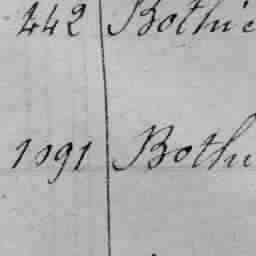 442 Bothie
1091 Bothi